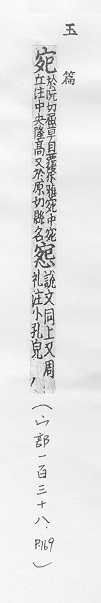 玉篇
宛於阮切屈草自覆爾雅宛中宛
丘注中央隆高又於原切縣名
惌說文同上又周
礼注小孔皃
(宀部一百三十八. P.169)